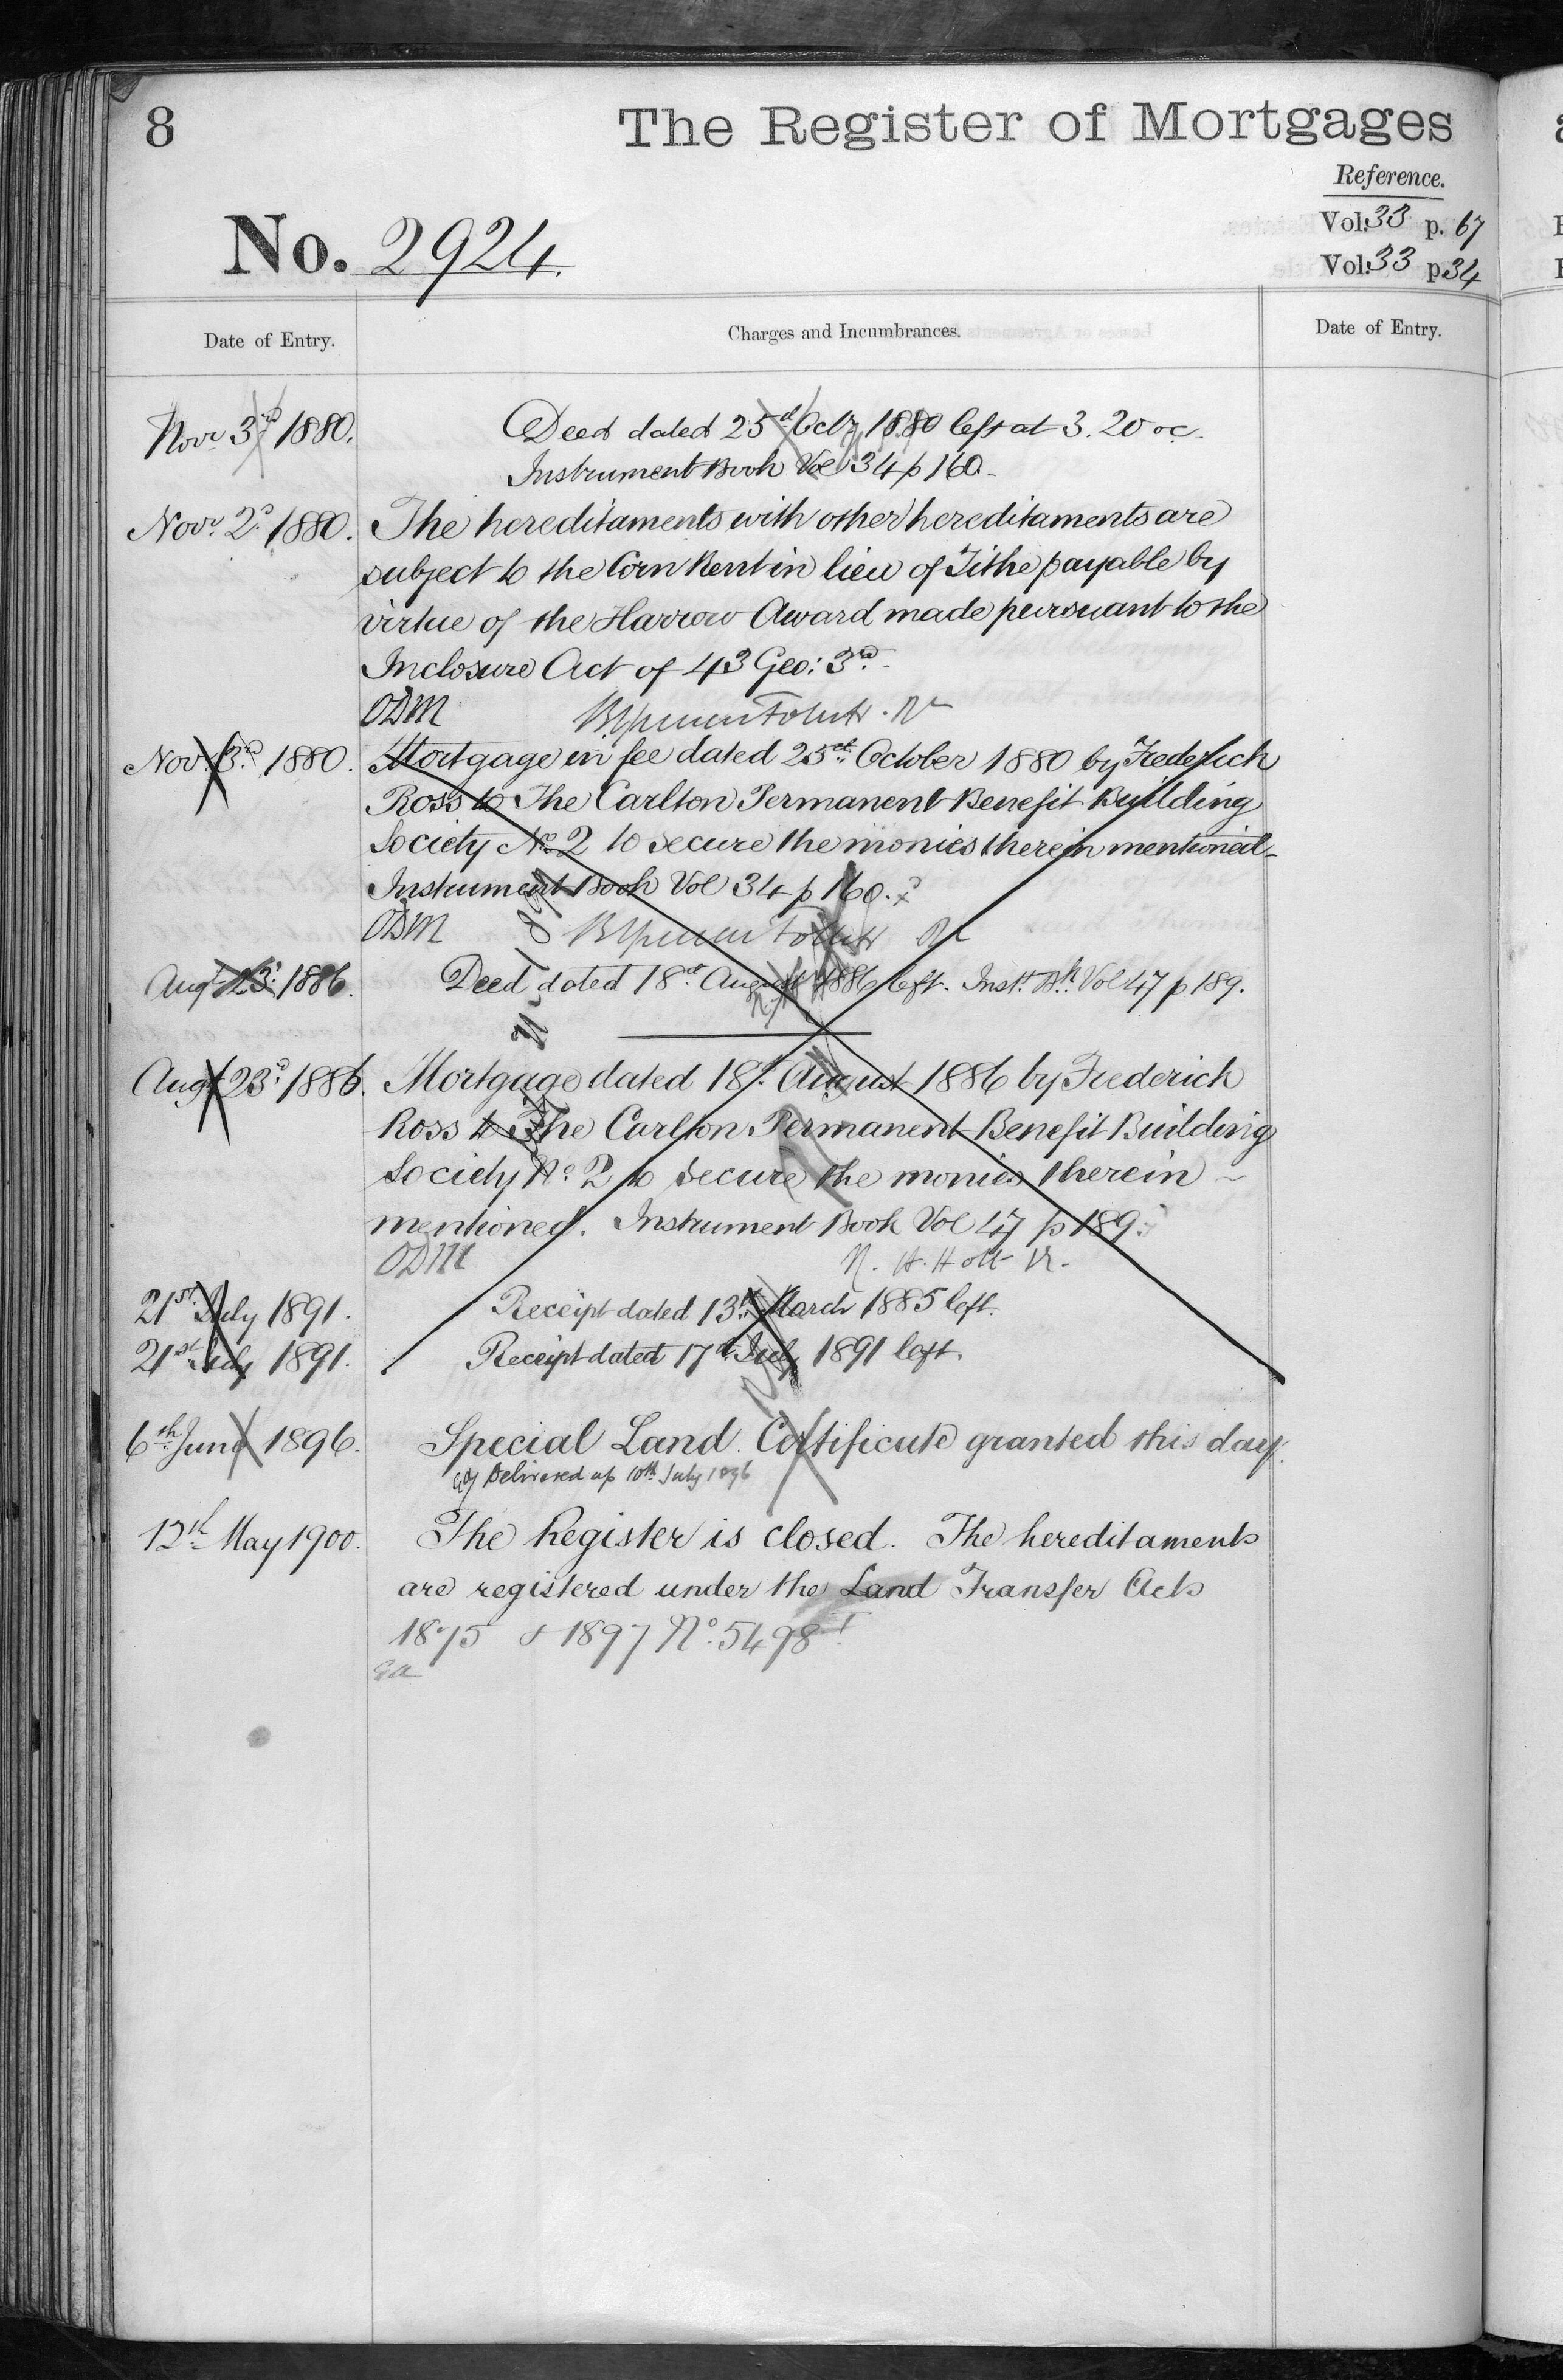 8
The Register of Mortgages
Reference.
No. 2924.
Vol: 33 p. 67
Vol: 33 p 34
Date of Entry.
Charges and Incumbrances.
Date of Entry.
Novr 3rd 1880.
Deed dated 25th Octr 1880 left at 3.20 oc.
Instrument Book Vol 34 p 160.
Novr 2d 1880.
The hereditaments with other hereditaments are
subject to the Corn Rent in lieu of Tithe payable by
virtue of the Harrow Award made pursuant to the
Inclosure Act of 43 Geo: 3rd.
ODM
Nov. 3rd 1880.
Mortgage in fee dated 25th October 1880 by Frederick
Ross to The Carlton Permanent Benefit Building
Society No 2 to secure the monies therein mentioned
Instrument Book Vol 34 p 160.
ODM
Augt 23d 1886.
Deed dated 18th August 1886 left. Inst. Bk. Vol 47 p 189.
Augt 23d 1886.
Mortgage dated 18th August 1886 by Frederick
Ross to The Carlton Permanent Benefit Building
Society No. 2 to secure the monies therein
mentioned. Instrument Book Vol 47 p 189.
ODM
R. H. Holt R.
21st July 1891.
Receipt dated 13th March 1885 left.
21st July 1891.
Receipt dated 17th July 1891 left.
6th June 1896.
Special Land Certificate granted this day.
Delivered up 10th July 1896
12th May 1900.
The Register is closed. The hereditaments
are registered under the Land Transfer Acts
1875 & 1897 No. 5498